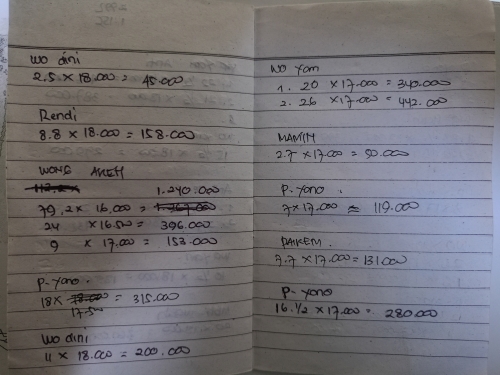 Wo dini
2.5 x 18.000 = 45.000
Rendi
8.8 x 18.000 = 158.000
WONG AKEH
1.240.000
79,2 x 16.000 =
24 x 16.500 = 396.000
9 x 17.000 = 153.000
P. yono.
18 x = 315.000
17.500
Wo dini
11 x 18.000 = 200.000
WO Yam
1. 20 x 17.000 = 340.000
2. 26 x 17.000 = 442.000
2.7 x 17.000 = 50.000
P. yono.
7 x 17.000 = 119.000
PAIKEM.
7.7 x 17.000 = 131.000
P. yono
16.1/2 x 17.000 = 280.000